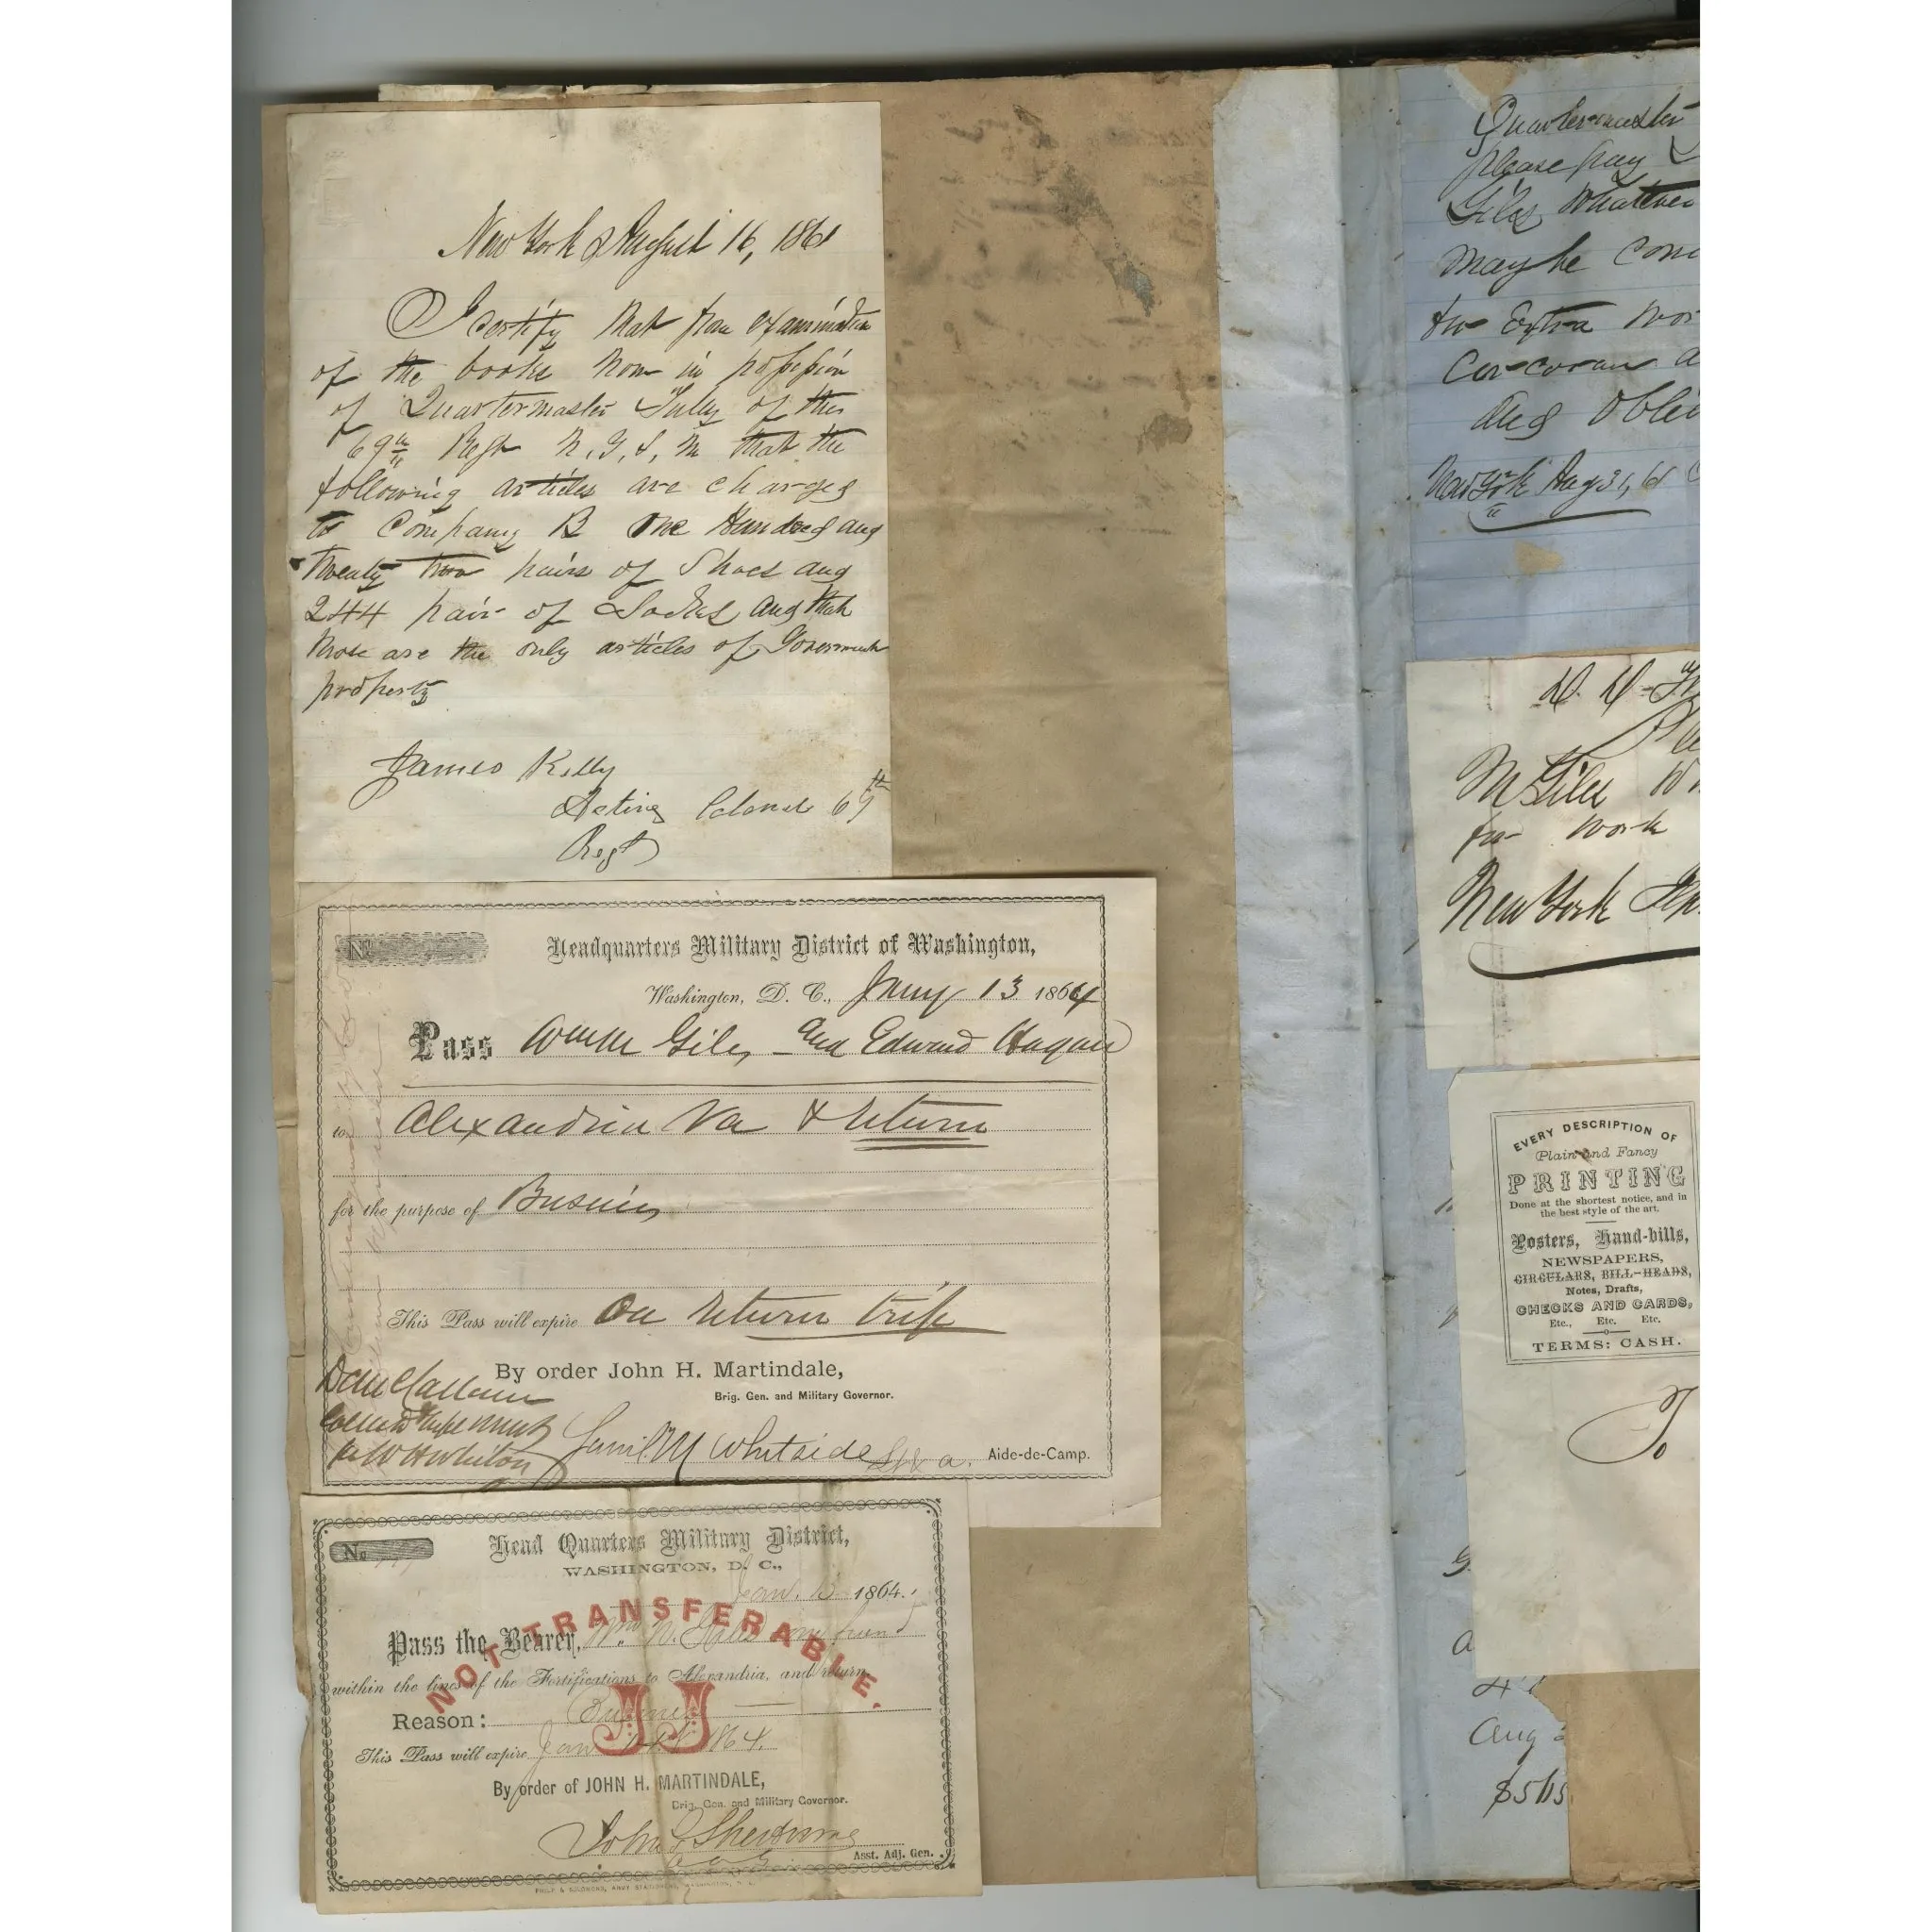 New York August 16, 1861
I certify that from examination
of the books now in possession
of Quartermaster Tully of the
69th Regt N.Y.S.M that the
following articles are charged
to Company B One Hundred and
twenty two pairs of Shoes and
244 pair of Socks and that
those are the only articles of Government
property
James Kelly
Acting Colonel 69th
Regt
No
Headquarters Military District of Washington,
Washington, D. C., Jany 13 1864
Pass Giles and Edward Hagan
to Alexandria Va & return
for the purpose of Business
This Pass will expire On return trip
By order John H. Martindale,
Brig. Gen. and Military Governor.
Whitside Aide-de-Camp.
No
Head Quarters Military District,
WASHINGTON, D. C.,
Jan. 1864.
NOT TRANSFERABLE.
Pass the Bearer, Wm
within the lines of the Fortifications to Alexandria, and return
JJ
Reason: Business
This Pass will expire Jan 1864.
By order of JOHN H. MARTINDALE,
Brig. Gen. and Military Governor.
John
Asst. Adj. Gen.
PHILP & SOLOMONS, ARMY STATIONERS, WASHINGTON, D. C.
Quartermaster
please pay
Giles Whatever
may be
for Extra
Corcoran
and
New York Aug 31, 61
M Giles
for work
New York
EVERY DESCRIPTION OF
Plain and Fancy
PRINTING
Done at the shortest notice, and in
the best style of the art.
Posters, Hand-bills,
NEWSPAPERS,
CIRCULARS, BILL-HEADS,
Notes, Drafts,
CHECKS AND CARDS,
Etc., Etc. Etc.
TERMS: CASH.
To
Aug